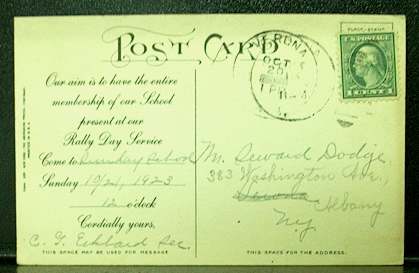 POST CARD
VERONA
OCT
20
1 PM
PLACE STAMP
U.S. POSTAGE
1 CENT 1
Our aim is to have the entire
membership of our School
present at our
Rally Day Service
Come to Sunday School
Sunday 10/21, 1923
12 o'clock
Cordially yours,
C. F. Sec.
THIS SPACE MAY BE USED FOR MESSAGE
Mr. Seward Dodge
383 Washington Ave.,
Albany
N.Y.
THIS SPACE FOR THE ADDRESS.